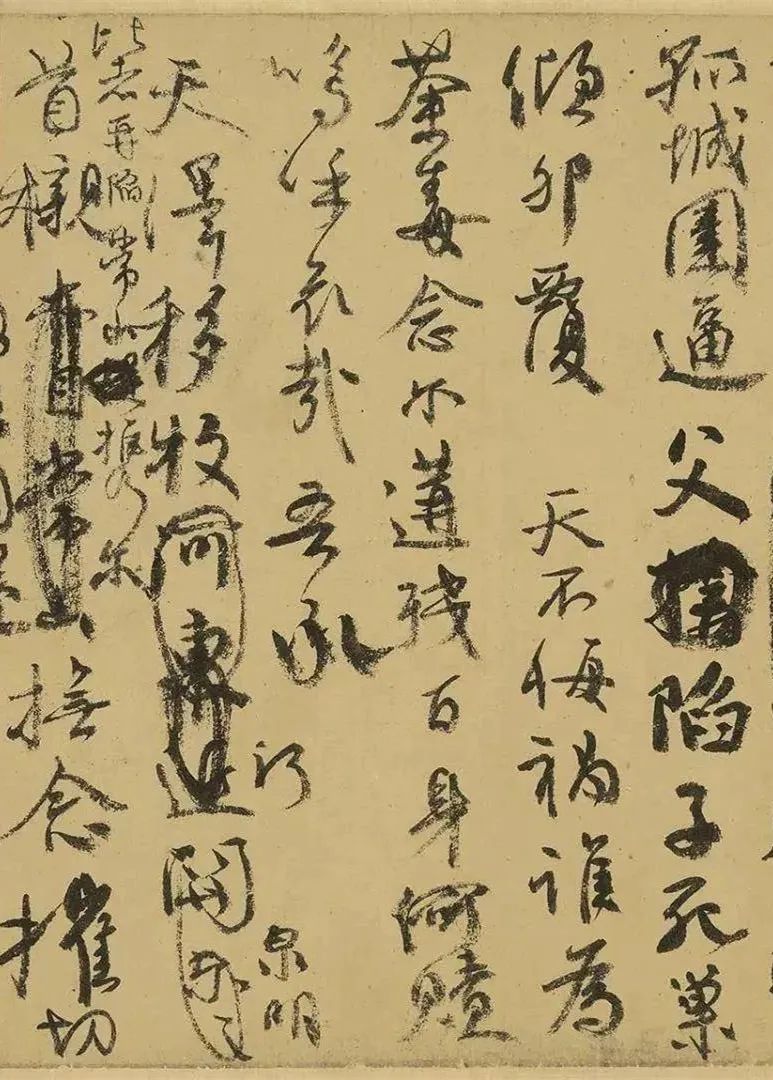 孤城圍逼父陷子死巢
傾卵覆 天不悔禍誰為
荼毒念尔遘殘百身何贖
嗚呼哀哉吾承
天澤移牧河東近河關
泉明
比者再陷常山携尔
首櫬常山撫念摧切